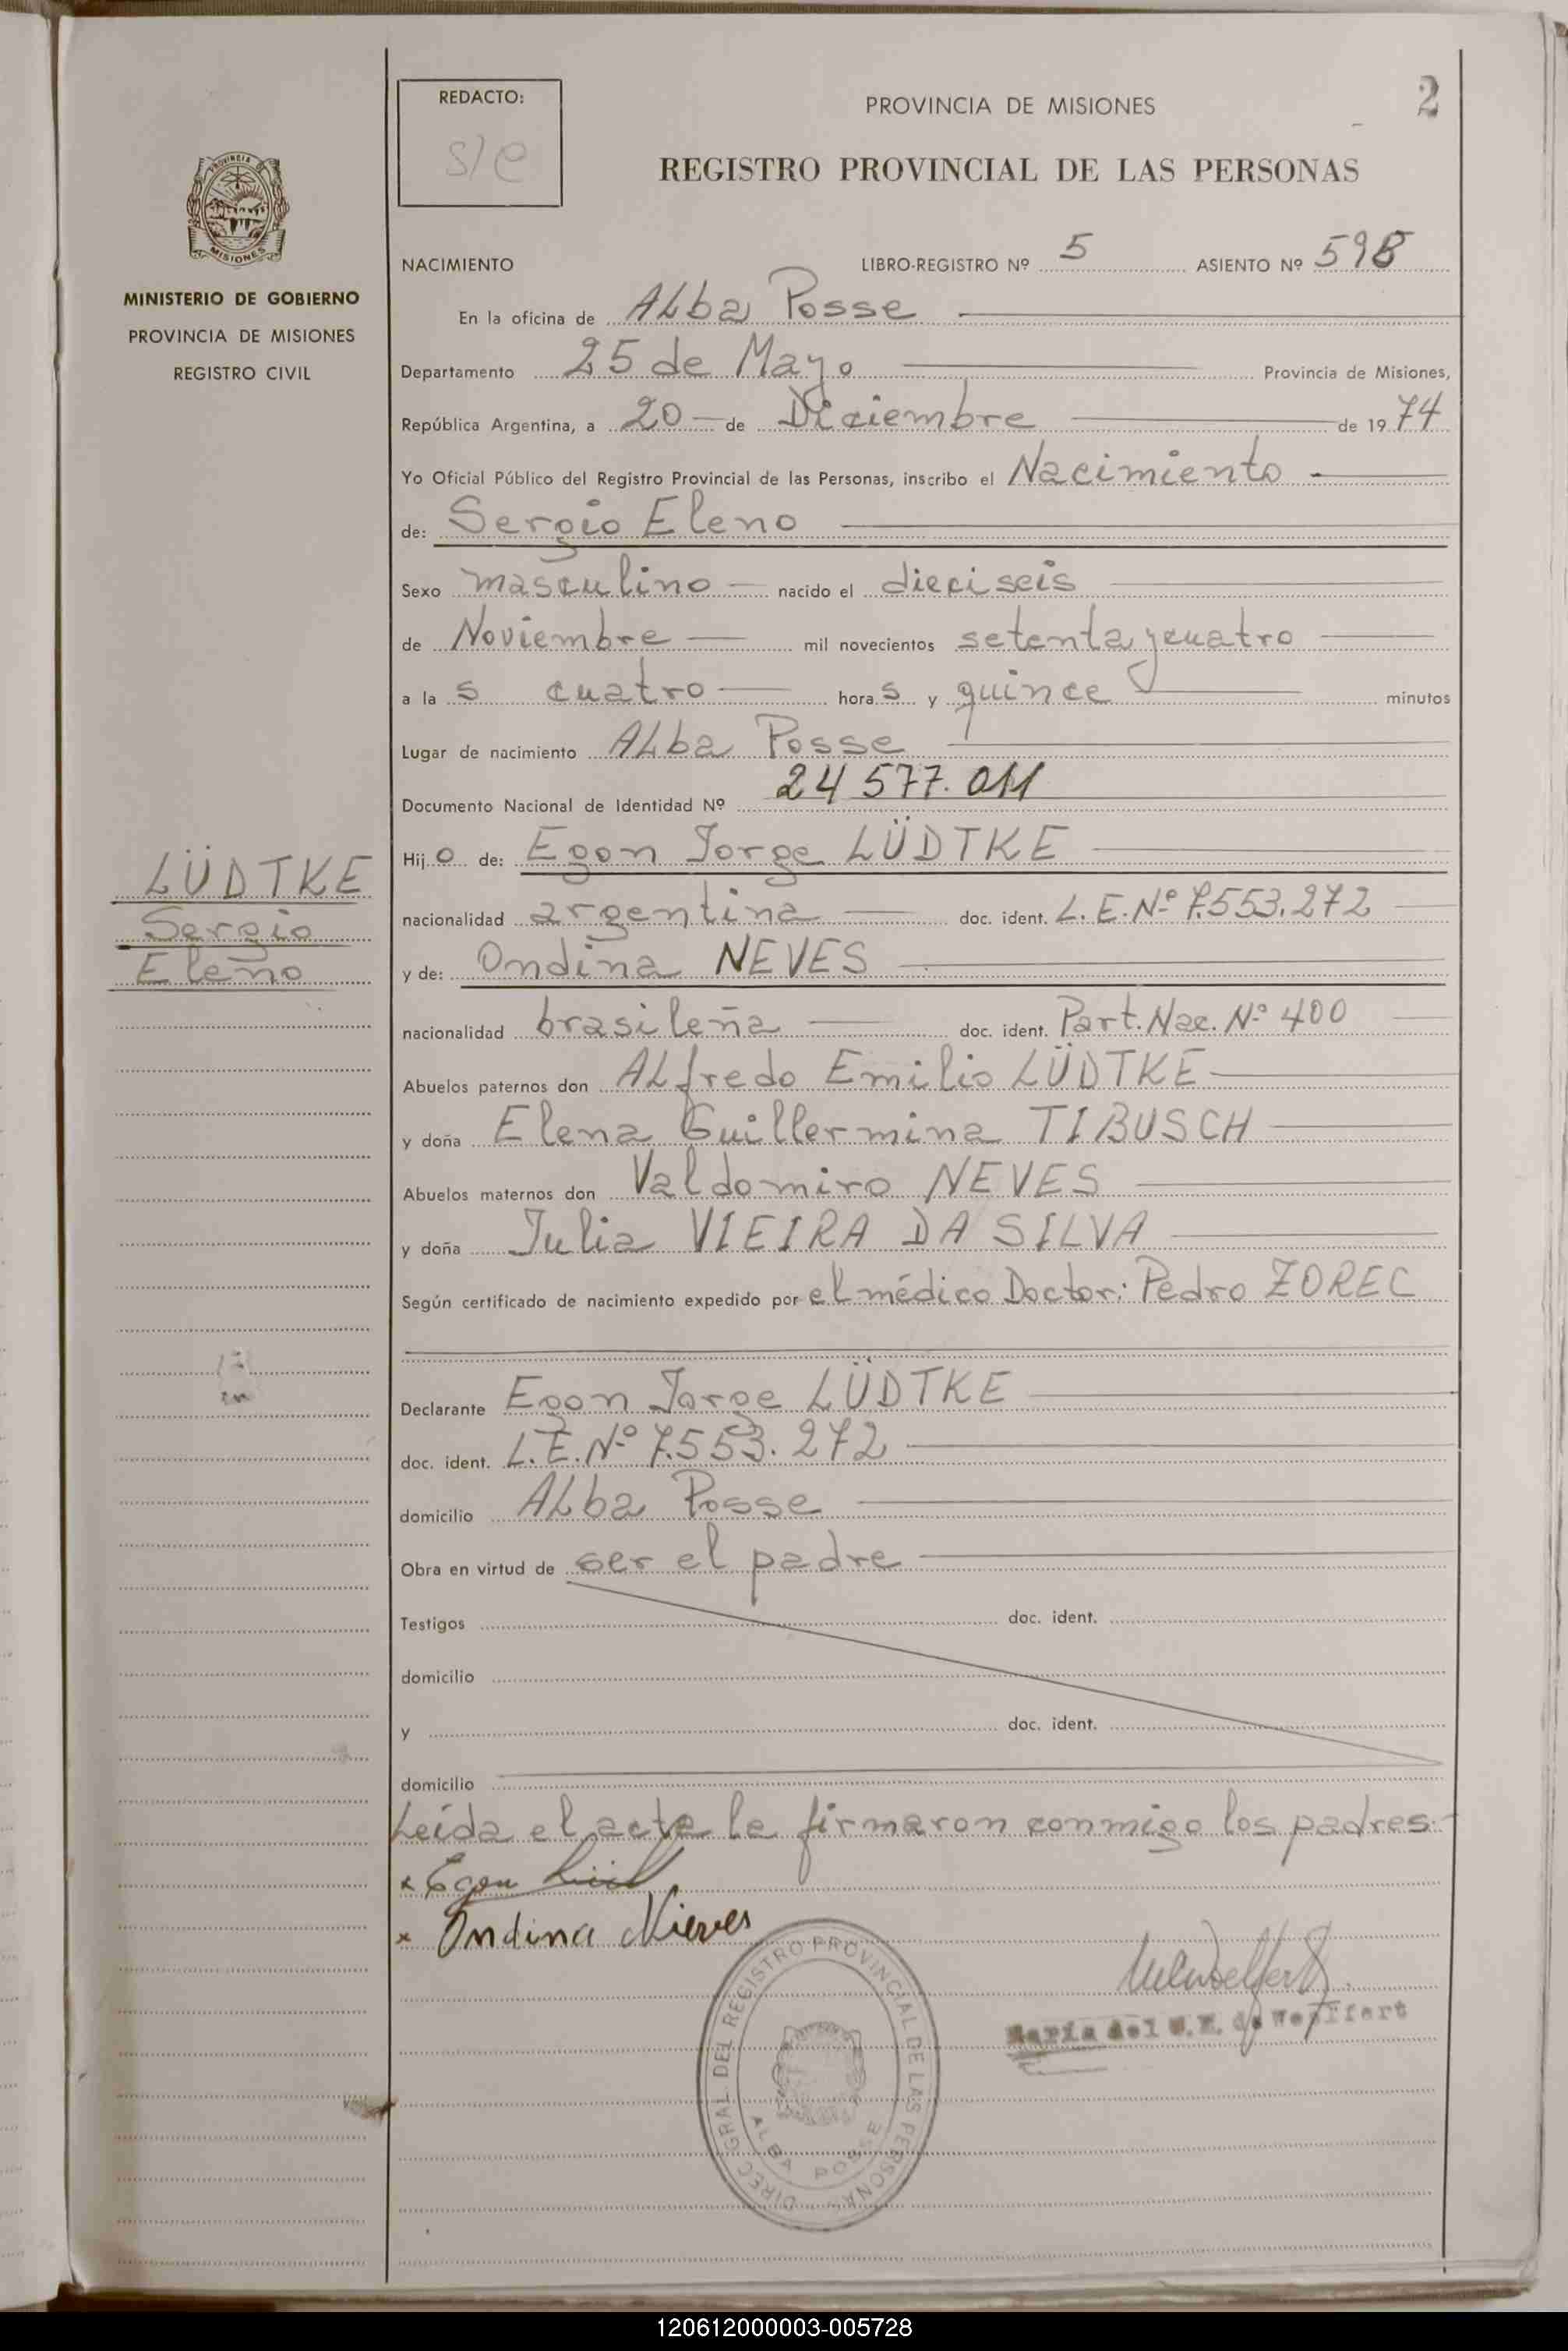 2
REDACTO:
s/c
PROVINCIA DE MISIONES
REGISTRO PROVINCIAL DE LAS PERSONAS
PROVINCIA DE
MISIONES
MINISTERIO DE GOBIERNO
PROVINCIA DE MISIONES
REGISTRO CIVIL
NACIMIENTO LIBRO-REGISTRO Nº 5 ASIENTO Nº 598
En la oficina de ALba Posse
Departamento 25 de Mayo Provincia de Misiones,
República Argentina, a 20 de Diciembre de 19 74
Yo Oficial Público del Registro Provincial de las Personas, inscribo el Nacimiento
de: Sergio Eleno
Sexo masculino nacido el dieciseis
de Noviembre mil novecientos setenta y cuatro
a la s cuatro hora s y quince minutos
Lugar de nacimiento ALba Posse
Documento Nacional de Identidad Nº 24 577. 011
Hij o de: Egon Jorge LÜDTKE
nacionalidad argentina doc. ident. L.E.Nº 7.553.272
y de: Ondina NEVES
nacionalidad brasileña doc. ident. Part. Nac. Nº 400
Abuelos paternos don ALfredo Emilio LÜDTKE
y doña Elena Guillermina TIBUSCH
Abuelos maternos don Valdomiro NEVES
y doña Julia VIEIRA DA SILVA
Según certificado de nacimiento expedido por el médico Doctor: Pedro ZOREC
Declarante Egon Jorge LÜDTKE
doc. ident. L.E.Nº 7.553.272
domicilio ALba Posse
Obra en virtud de ser el padre
Testigos doc. ident.
domicilio
y doc. ident.
domicilio
Leída el acta la firmaron conmigo los padres.
x Egon
x Ondina Nieves
LÜDTKE
Sergio
Eleno
DIREC. GRAL. DEL REGISTRO PROVINCIAL DE LAS PERSONAS
ALBA POSSE
María del de Welffert
120612000003-005728